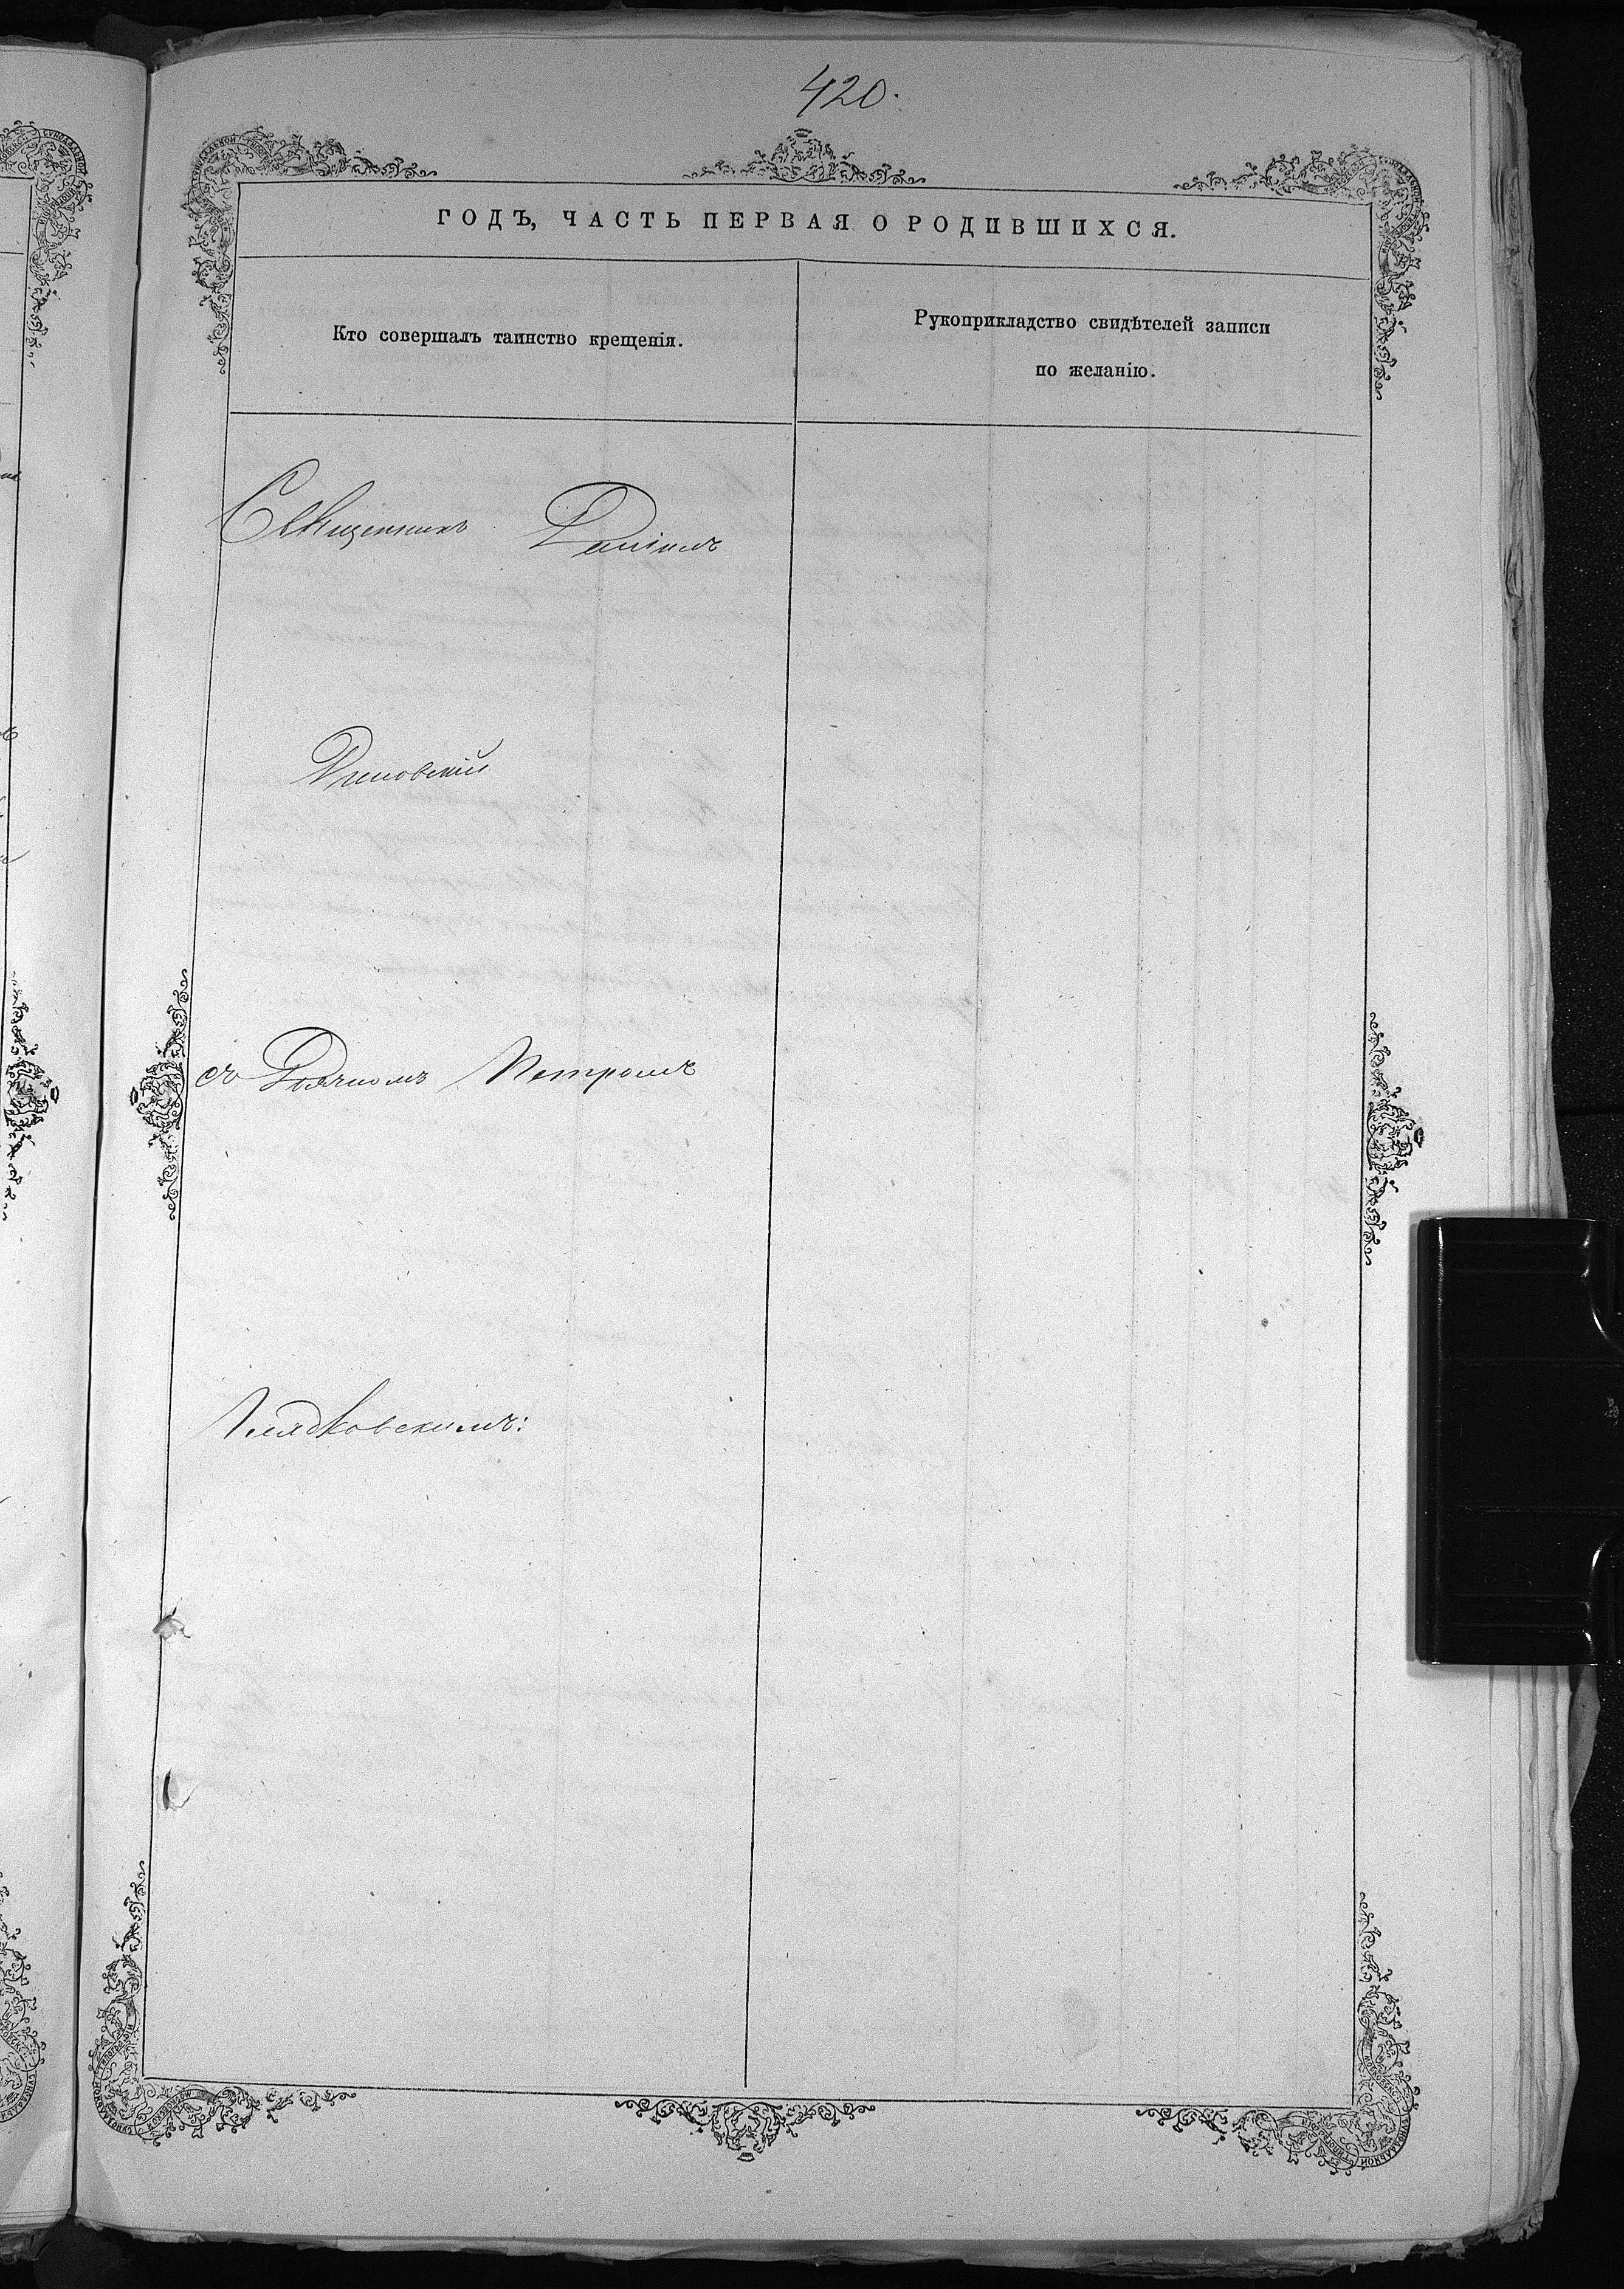 420.
ГОДЪ, ЧАСТЬ ПЕРВАЯ О РОДИВШИХСЯ.
Кто совершалъ таинство крещенія.
Рукоприкладство свидѣтелей записи
по желанію.
Священникъ Даніилъ
съ Дьячкомъ Петромъ